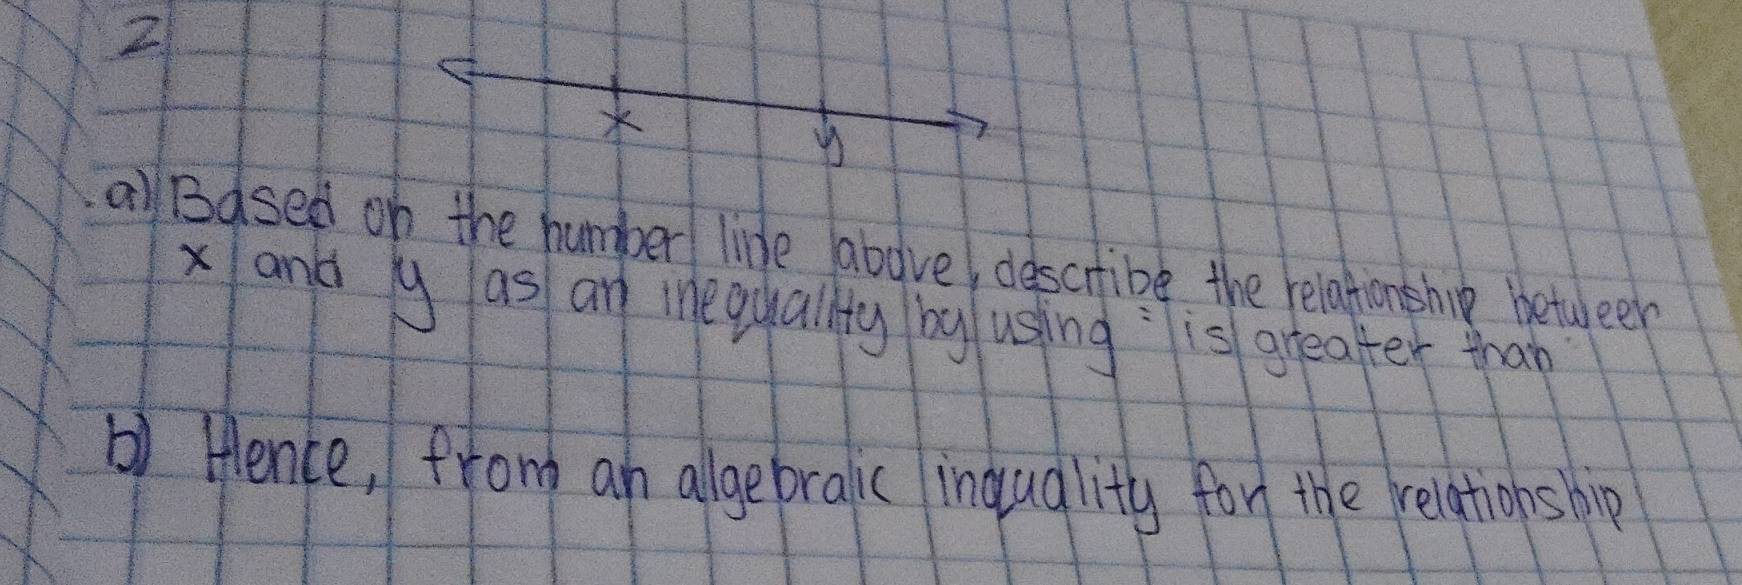 2
x y
a) Based on the number line above, describe the relationship between
x and y as an inequality by using "is greater than"
b) Hence, from an algebraic inquality for the relationship